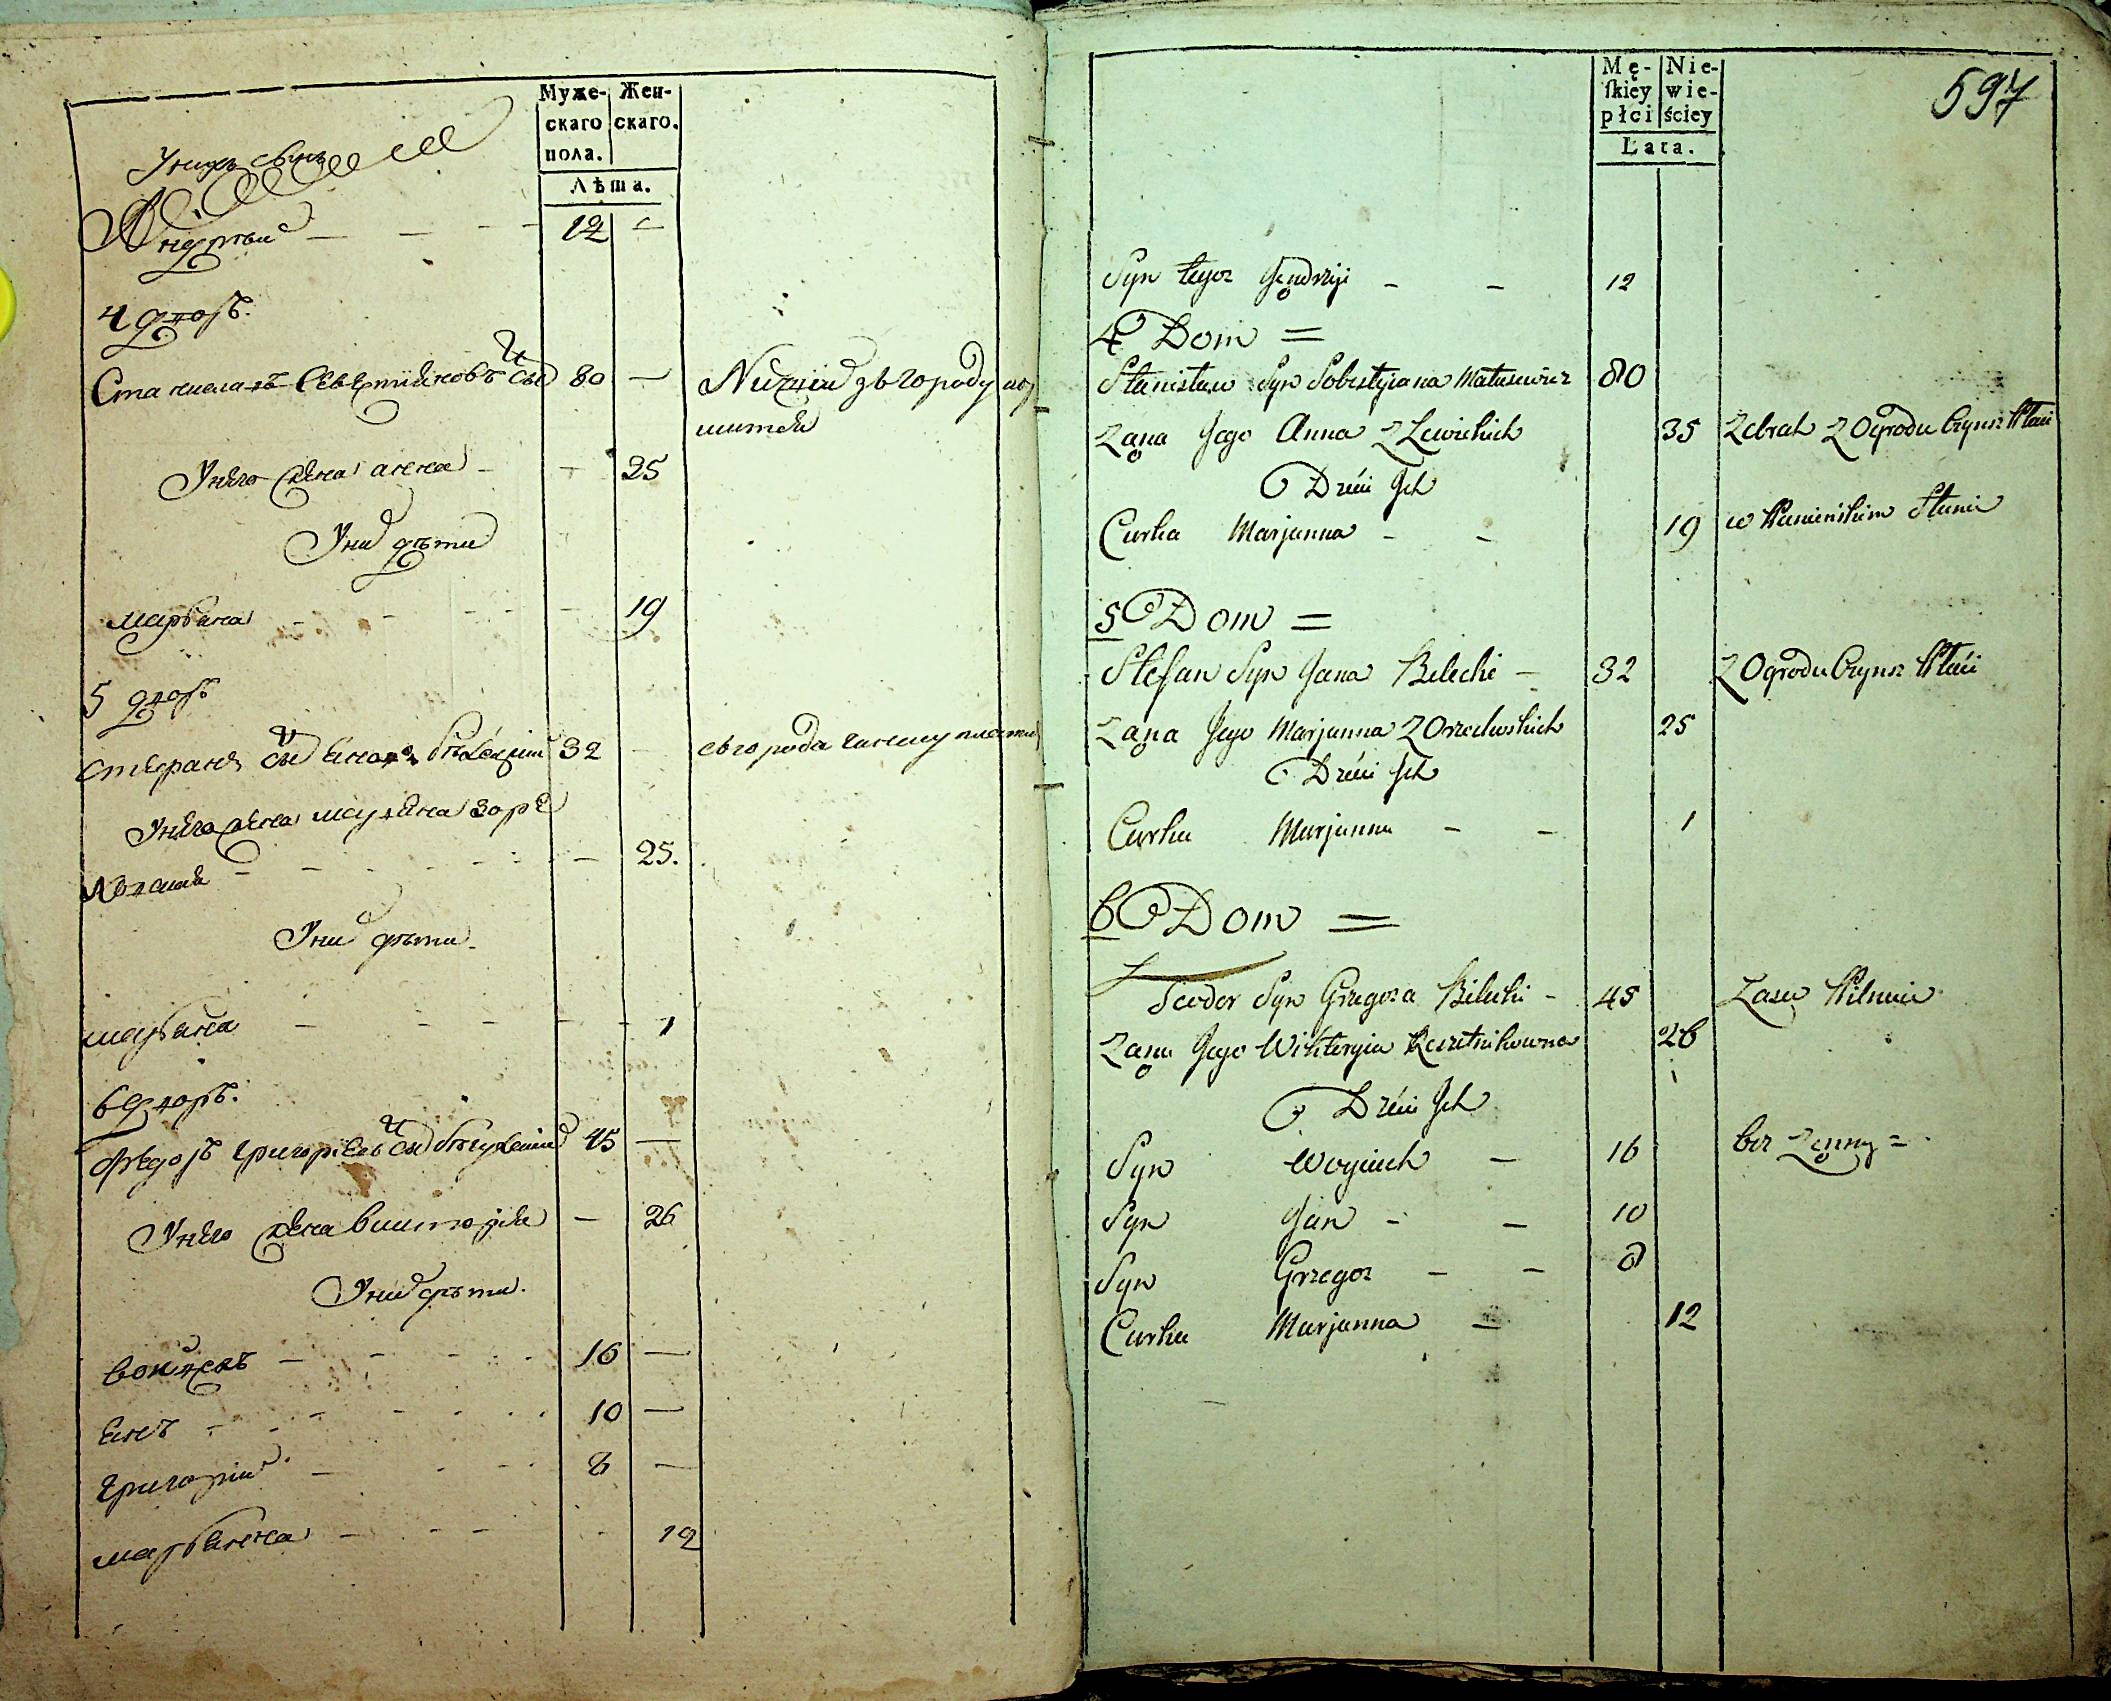 Муже-
скаго
пола.
Жен-
скаго.
Лѣта.
У нихъ сынъ
Андрѣй 12 —
4 дворъ.
Станиславъ Севестияновъ сынъ 80 — Нищий
У него жена анна — 35
У ни дѣти
марьяна — 19
5 дворъ
стефанъ сынъ яновъ 32 — платит
У него жена марьяна
— 25.
У ни дѣти
марьяна — 1
6 дворъ.
Федоръ григориевъ сынъ 45 —
У него жена виктория — 26
У ни дѣти.
войцехъ — 16 —
янъ — 10 —
григорий — 8 —
марьянна — 12
597
Mę-
skiey
płci
Nie-
wie-
ściey
Lata.
Syn tegoz Jędrzij — — 12
4 Dom =
Stanisław Syn Sobestyiana Matusewicz 80
Ząna Jego Anna Z Lewickich 35 Zebrak Z Ogrodu Czynsz Płaci
Dzieci Jch
Curka Marjanna — — 19 w Kamieńskim Stanie
5 Dom =
Stefan Syn Jana Bilecki — 32 Z Ogrodu Czynsz Płaci
Ząna Jego Marjanna Z Orzechwskich 25
Dzieci Jch
Curka Marjanna — — 1
6 Dom =
Teodor Syn Grzegorza Bilecki — 45 Lasu Pilnuie
Ząna Jego Wiktoryia Reszetnikowna 26
Dzieci Jch
Syn Woyciech — 16 bez Zęnny =
Syn Jan — — 10
Syn Grzegorz — — 8
Curka Marjanna — 12